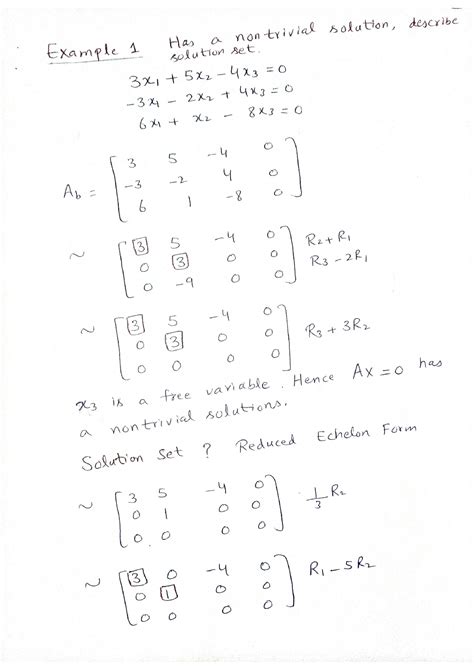 Example 1 Has a nontrivial solution, describe
solution set.
3x₁ + 5x₂ - 4x₃ = 0
-3x₁ - 2x₂ + 4x₃ = 0
6x₁ + x₂ - 8x₃ = 0
A_b = [ 3 5 -4 0
-3 -2 4 0
6 1 -8 0 ]
~ [ 3 5 -4 0
0 3 0 0 R₂ + R₁
0 -9 0 0 ] R₃ - 2R₁
~ [ 3 5 -4 0
0 3 0 0
0 0 0 0 ] R₃ + 3R₂
x₃ is a free variable. Hence Ax = 0 has
a nontrivial solutions.
Solution Set ? Reduced Echelon Form
~ [ 3 5 -4 0
0 1 0 0
0 0 0 0 ] 1/3 R₂
~ [ 3 0 -4 0
0 1 0 0
0 0 0 0 ] R₁ - 5R₂